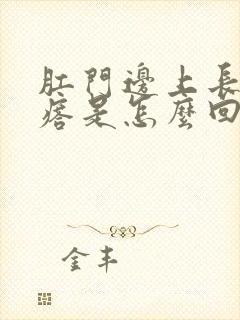 肛門邊上長
痞是怎麼回
金丰